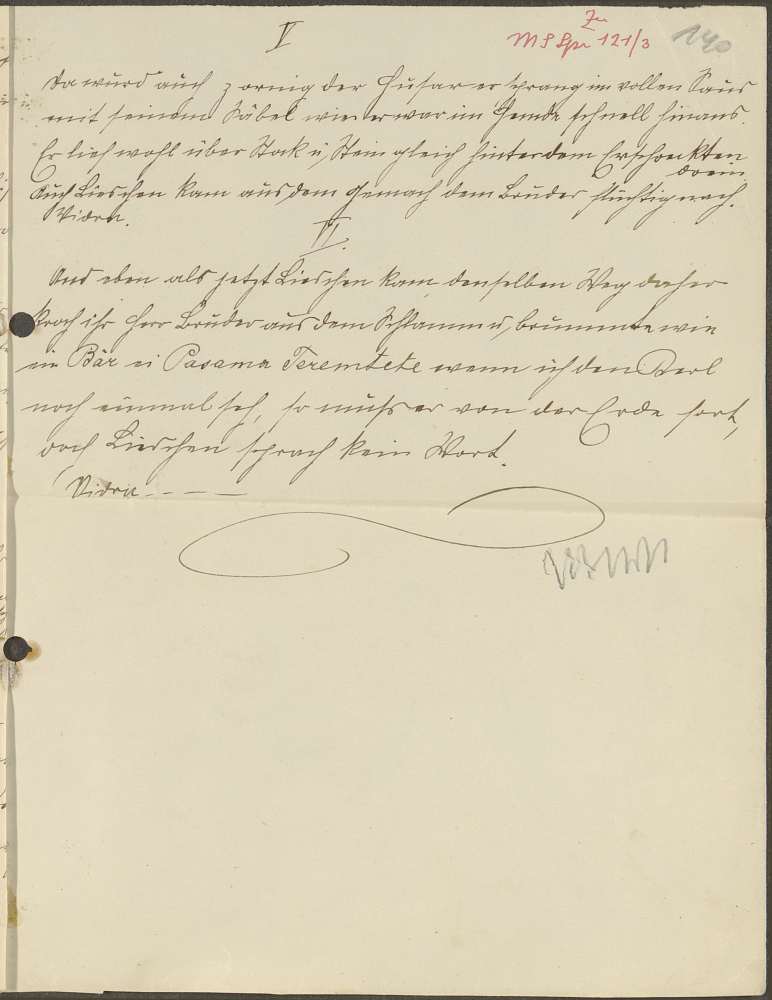 V
Zu
MS Spr 121/3
140
Da wurd auch zornig der Husar er sprang im vollen Saus
mit seinem Säbel wie er war im Hemde schnell hinaus.
Er lief wohl über Stock u, Stein gleich hinter dem Erschreckten
drein
Auch Lieschen kam aus dem Gemach dem Bruder flüchtig nach.
Vidra.
VI.
Und eben als jetzt Lieschen kam denselben Weg daher
kroch ihr Herr Bruder aus dem Schlamm u, brummte wie
ein Bär ei Basama Teremtete wenn ich den Kerl
noch einmal seh, so muß er von der Erde fort,
doch Lieschen sprach kein Wort.
Vidra - - - -